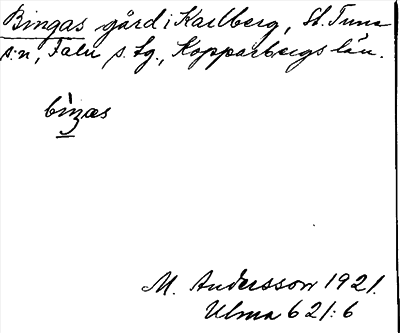 Bingas gård i Karlberg, St. Tuna
s:n, Falu s. lg., Kopparbergs län.
bìŋas
M. Andersson 1921.
Ulma 621:6